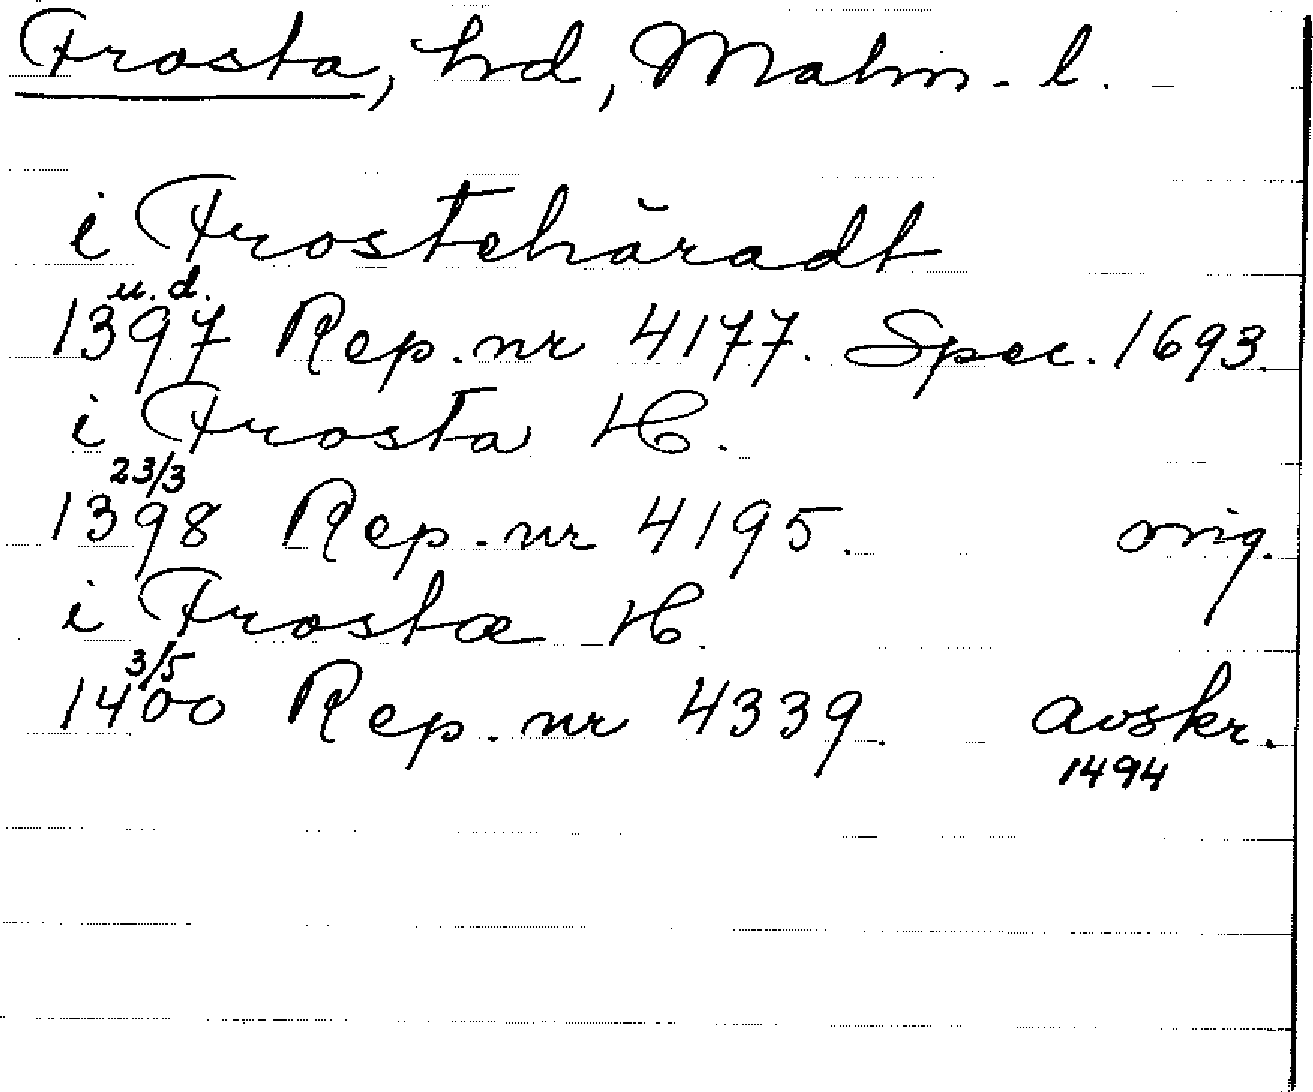 Frosta, hd, Malm. l.
i Frostehäradt
u. d.
1397 Rep. nr 4177. Spec. 1693.
i Frosta H.
23/3
1398 Rep. nr 4195. orig.
i Frostæ H.
3/5
1400 Rep. nr 4339. avskr.
1494